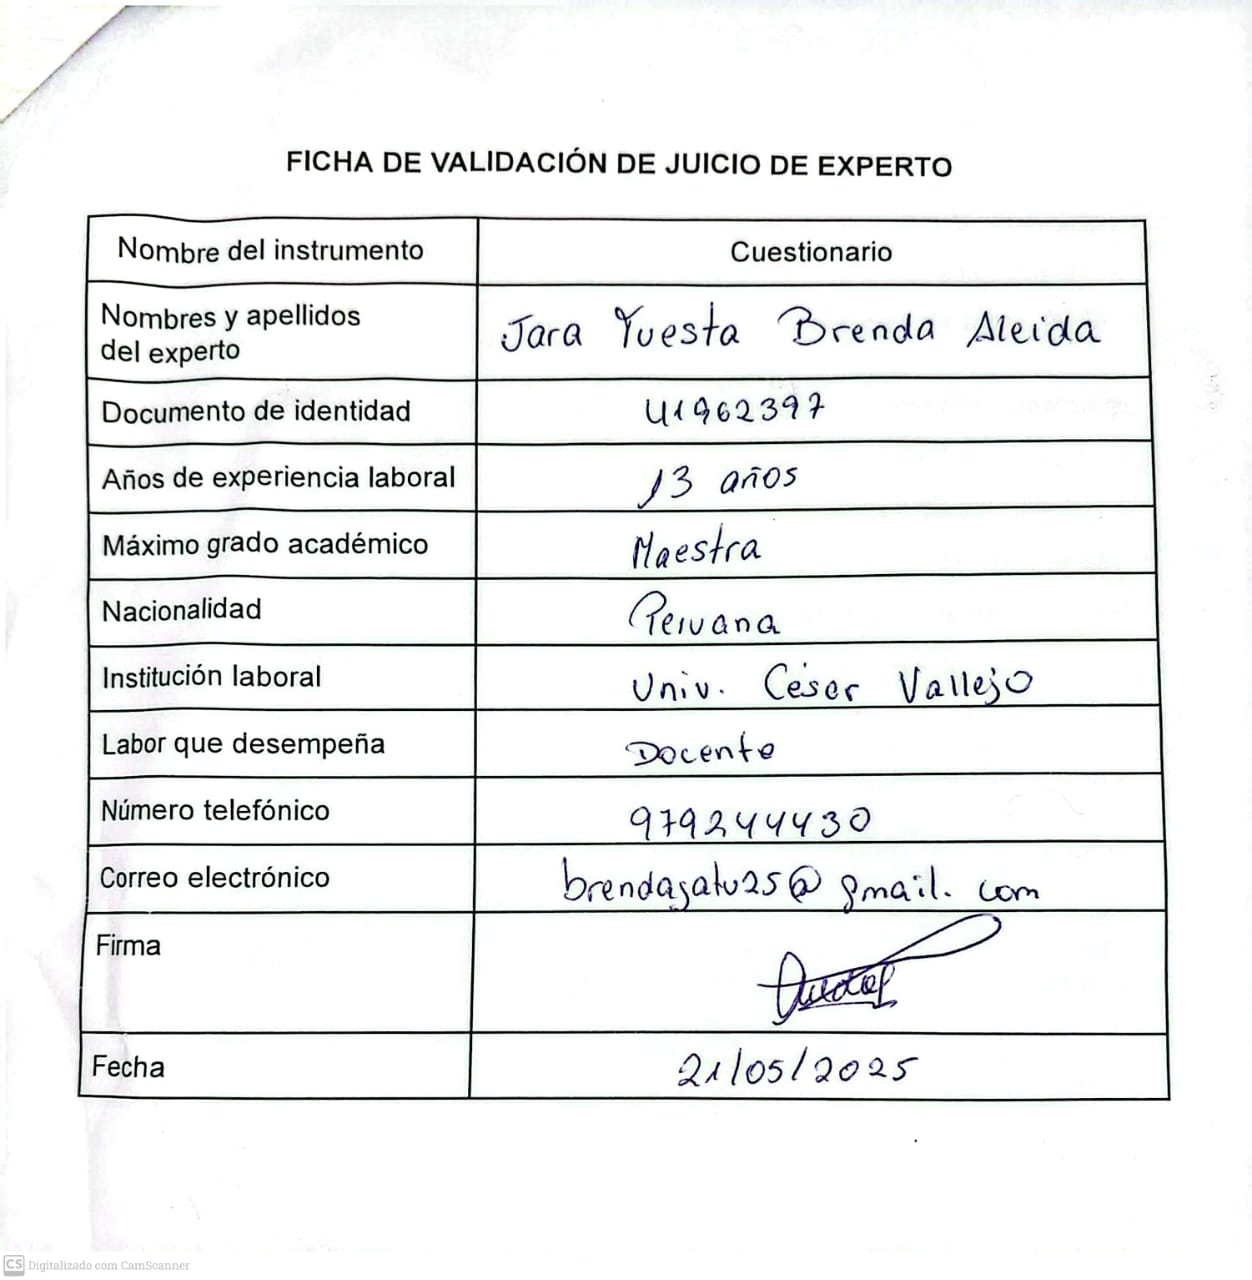 FICHA DE VALIDACIÓN DE JUICIO DE EXPERTO
Nombre del instrumento Cuestionario
Nombres y apellidos
del experto Jara Yuesta Brenda Aleida
Documento de identidad 41962397
Años de experiencia laboral 13 años
Máximo grado académico Maestra
Nacionalidad Peruana
Institución laboral Univ. César Vallejo
Labor que desempeña Docente
Número telefónico 979244430
Correo electrónico brendajatu25@gmail.com
Firma
Fecha 21/05/2025
CS Digitalizado com CamScanner